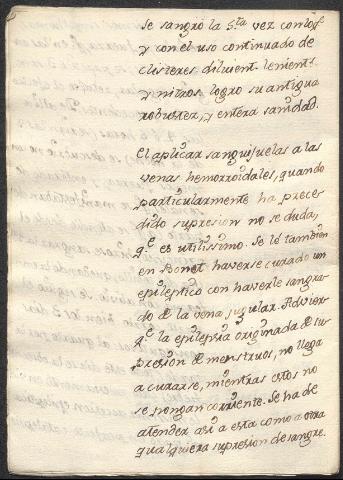 se sangrò la 5.ta vez con los
y con el uso continuado de
clisteres diluient. lenient.
y nitros. logrò su antigua
robustez, y entera sanidad.
El aplicar sanguijuelas a las
venas hemorroidales, quando
particularmente ha prece-
dido supresion no se duda,
q.e es utilissimo. Se lè tambien
en Bonet haverse curado un
epileptico con haverle sangra-
do de la vena jugular. Advier-
q.e la epilepsia originada de su-
presion de menstruos, no llega
a curarse, mientras estos no
se pongan corriente. Se ha de
atender asi a esta como a otra
qualquiera supresion de sangre.